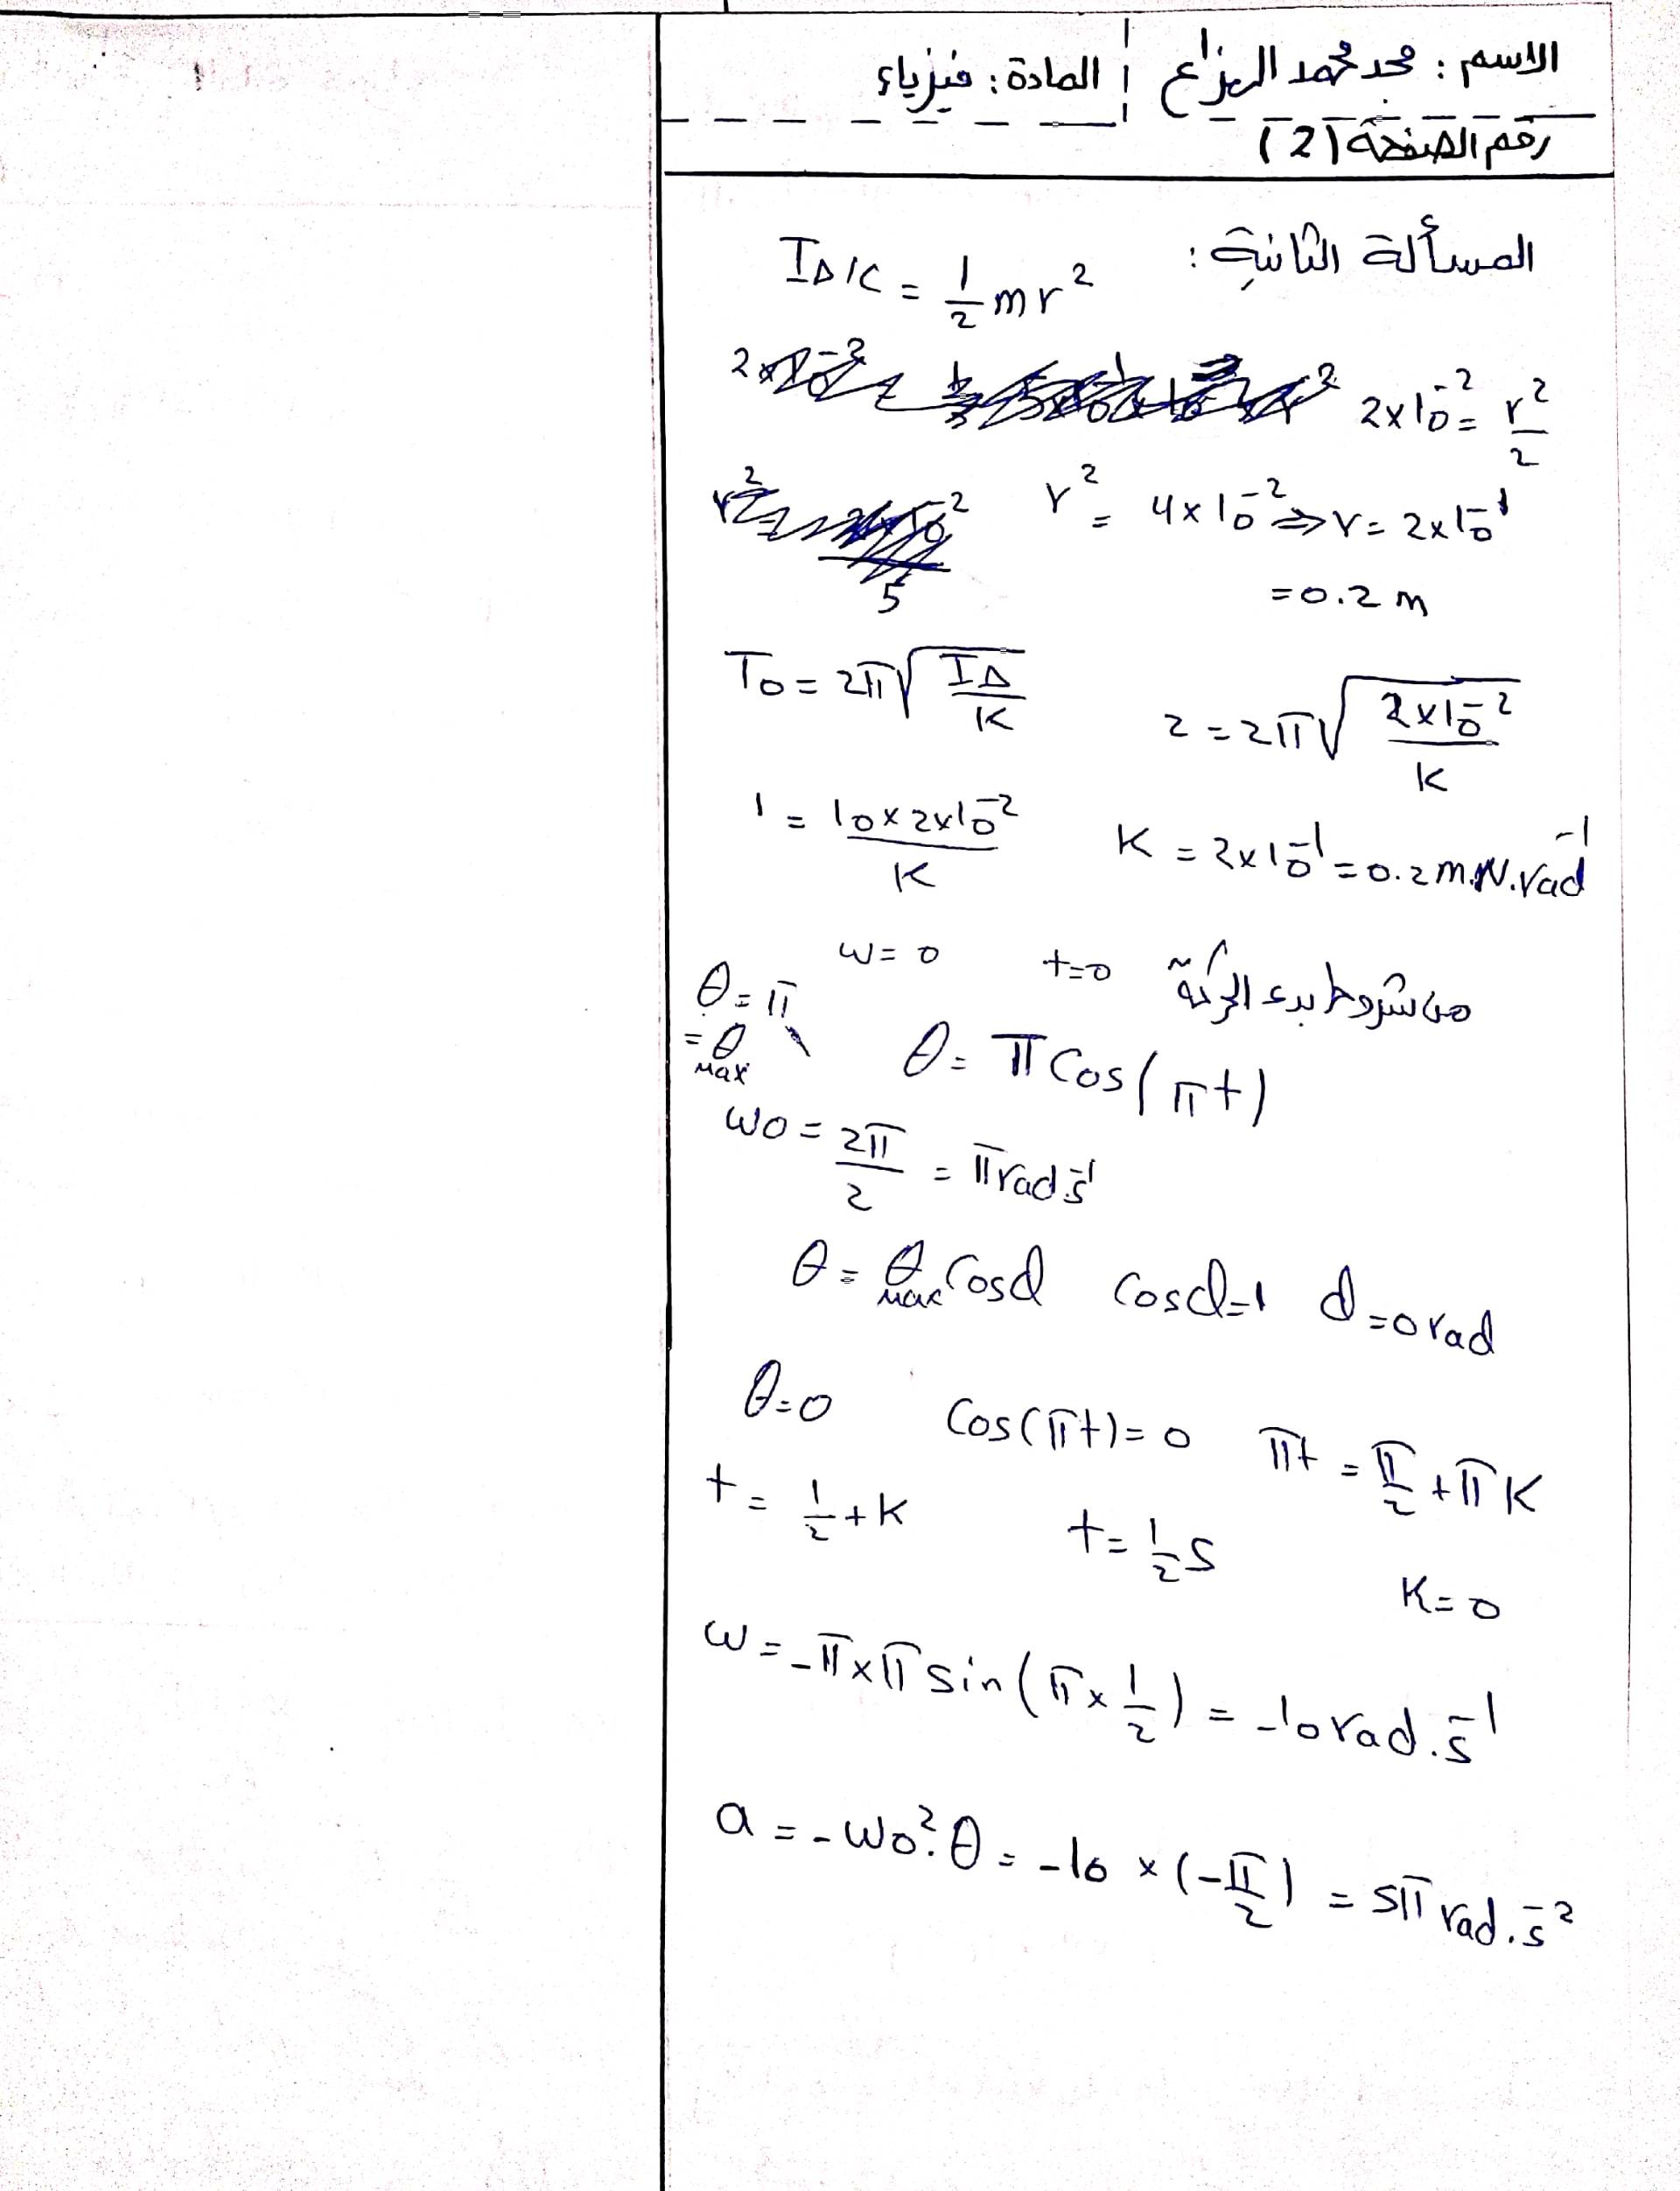 الاسم : محمد محمد الهزاع | المادة : فيزياء
رقم الصفحة (2)
المسألة الثانية :
I∆/c = 1/2 mr²
2×10⁻² = r²/2
r² = 4×10⁻² ⇒ r = 2×10⁻¹
= 0.2 m
T0 = 2π√(I∆/K)    2 = 2π√(2×10⁻²/K)
1 = 10×2×10⁻²/K    K = 2×10⁻¹ = 0.2 m.N.rad⁻¹
من شروط بدء الحركة t=0 ω=0 θ=π
=θmax    θ = π Cos(πt)
ω0 = 2π/2 = π rad.s⁻¹
θ = θmax Cosα    Cosα=1    α=0 rad
θ=0    Cos(πt)=0    πt = π/2 + πK
t = 1/2 + K    t = 1/2 s    K=0
ω = -π×π sin(π×1/2) = -10 rad.s⁻¹
a = -ω0².θ = -10 × (-π/2) = 5π rad.s⁻²